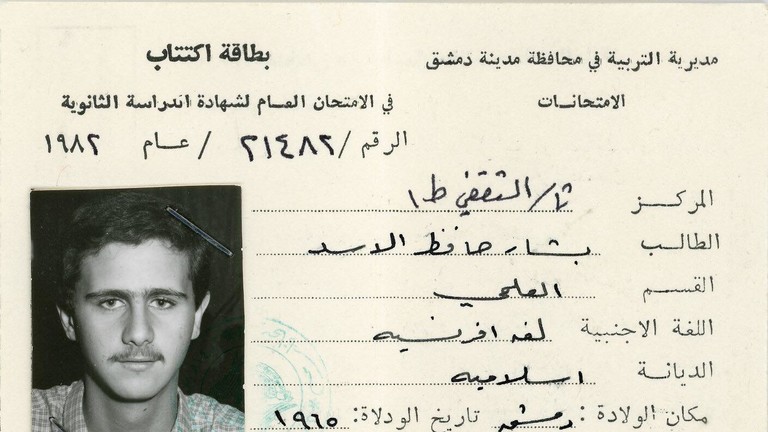 مديرية التربية في محافظة مدينة دمشق
الامتحانات
بطاقة اكتتاب
في الامتحان العام لشهادة الدراسة الثانوية
الرقم / ٢١٤٨٢ / عام ١٩٨٢
المركز ثا/الثقفي ط١
الطالب بشار حافظ الاسد
القسم العلمي
اللغة الاجنبية لغه افرنسيه
الديانة اسلاميه
مكان الولادة : دمشق تاريخ الودلاة: ١٩٦٥